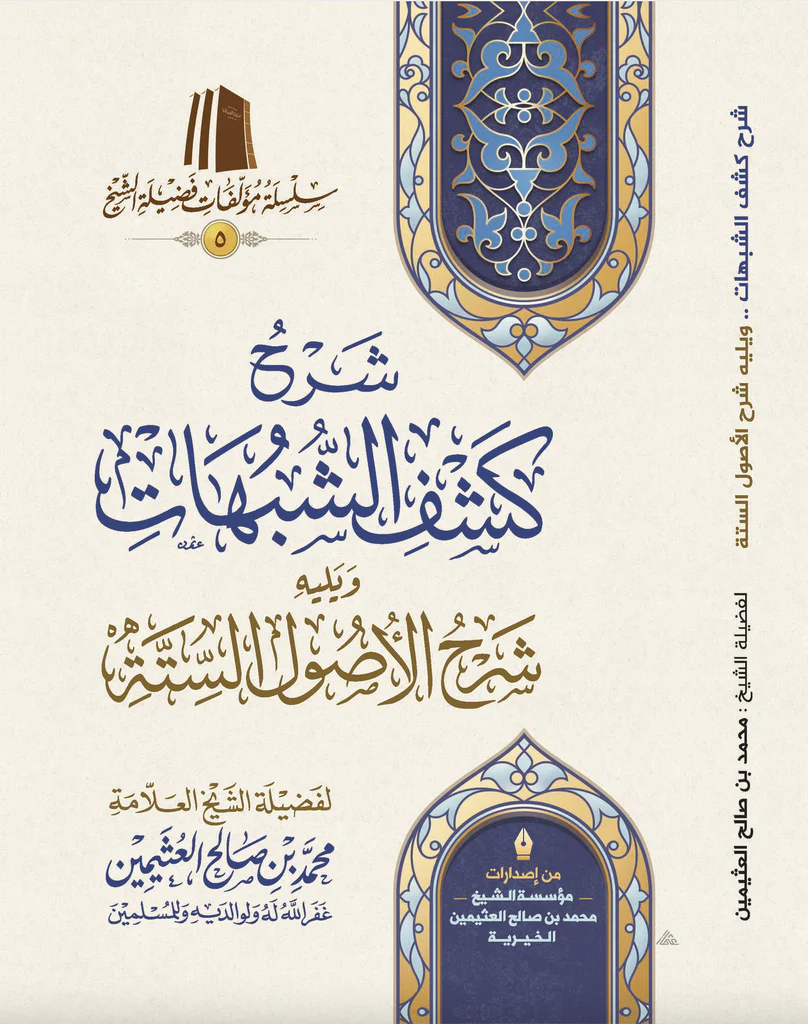 سِلْسِلَةُ مُؤَلَّفَات فَضِيلَةِ الشَّيْخ
٥
شَرْحُ
كَشْفِ الشُّبُهَاتِ
وَيَلِيهِ
شَرْحُ الأُصُولِ السِّتَّةِ
لفَضِيلَة الشَّيْخ العَلَّامَةِ
مُحَمَّد بْنِ صَالِح العُثَيمِين
غَفَرَ اللَّهُ لَهُ وَلوَالدَيهِ وَللمُسْلِمِينَ
من إصدارات
مؤسسة الشيخ
محمد بن صالح العثيمين
الخيرية
شرح كشف الشبهات .. ويليه شرح الأصول الستة
لفضيلة الشيخ : محمد بن صالح العثيمين